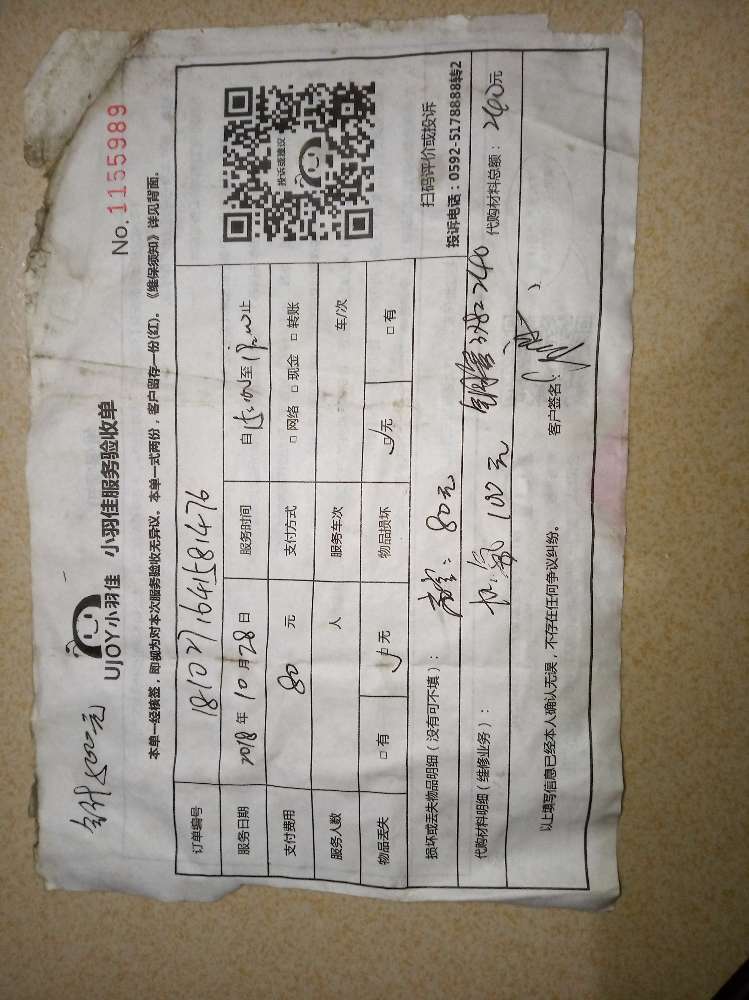 No. 1155989
UJOY小羽佳 小羽佳服务验收单
本单一经核签，即视为对本次服务验收无异议。本单一式两份，客户留存一份(红)。《维保须知》详见背面。
订单编号 1810271641581476
服务日期 2018年10月28日 服务时间 自15:00至17:00止
支付费用 80元 支付方式 □网络 □现金 □转账
服务人数 人 服务车次 车/次
物品丢失 □有 □无 物品损坏 □无 □有
投诉或建议
扫码评价或投诉
投诉电话：0592-5178888转2
损坏或丢失物品明细（没有可不填）： 80元
代购材料明细（维修业务）： 100元 代购材料总额： 元
以上填写信息已经本人确认无误，不存在任何争议纠纷。 客户签名：